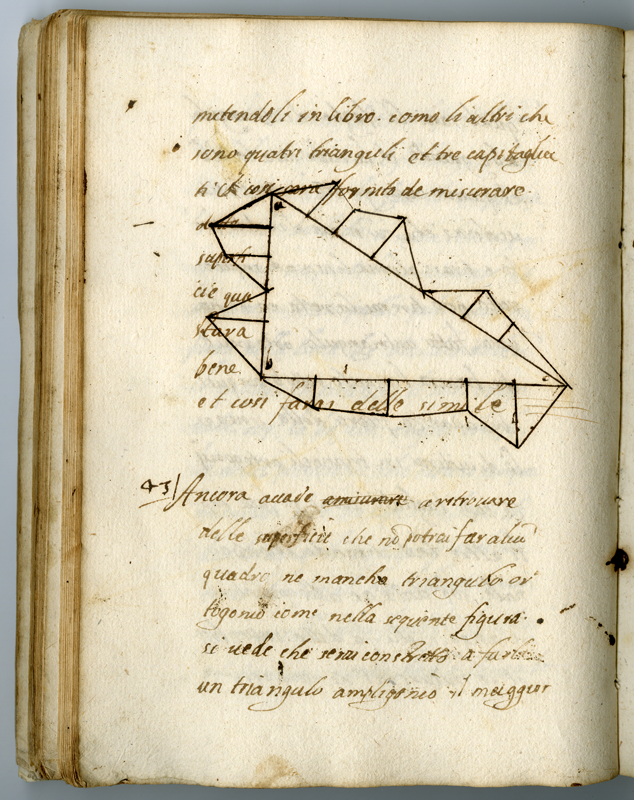 metendoli in libro. como li altri che
sono quatri trianguli et tre capitaglia
ti et cosi sara fornito de misurare
detta
a
superfi
cie qua
stara
b
bene
c
et cosi farai delle simile
43 Ancora acade a ritrovare
delle superficie che nō potrai far alcū
quadro ne mancho triangulo or
togonio come nella sequente figura.
si vede che serai a
un triangulo ampligonio il meggior